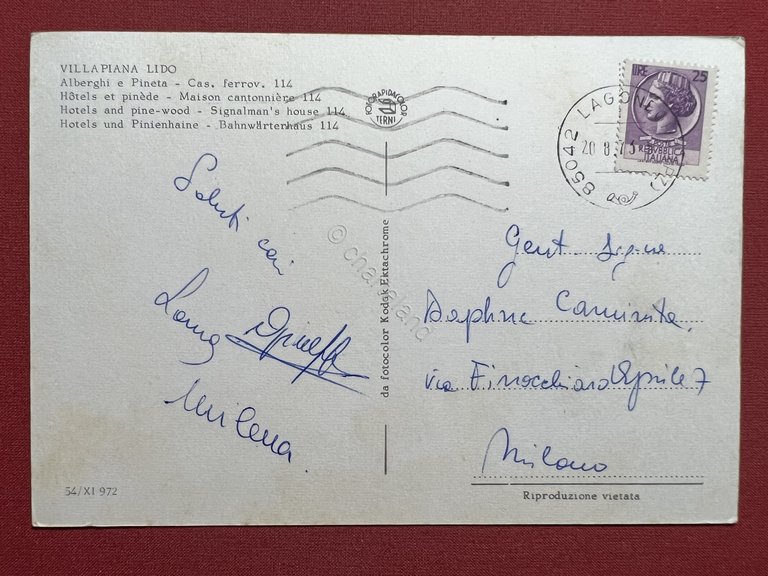 VILLAPIANA LIDO
Alberghi e Pineta - Cas. ferrov. 114
Hôtels et pinède - Maison cantonnière 114
Hotels and pine-wood - Signalman's house 114
Hotels und Pinienhaine - Bahnwärtenhaus 114
FOTORAPIDACOLOR
TERNI
LIRE 25
REPUBBLICA
ITALIANA
85042 LAGONE
20 8 73
(PZ)
Saluti cari
Milena
da fotocolor Kodak Ektachrome
© chartaland
Gent. Sig.na
Daphne Caminita
via Finocchiaro Aprile 7
Milano
54/XI 972
Riproduzione vietata